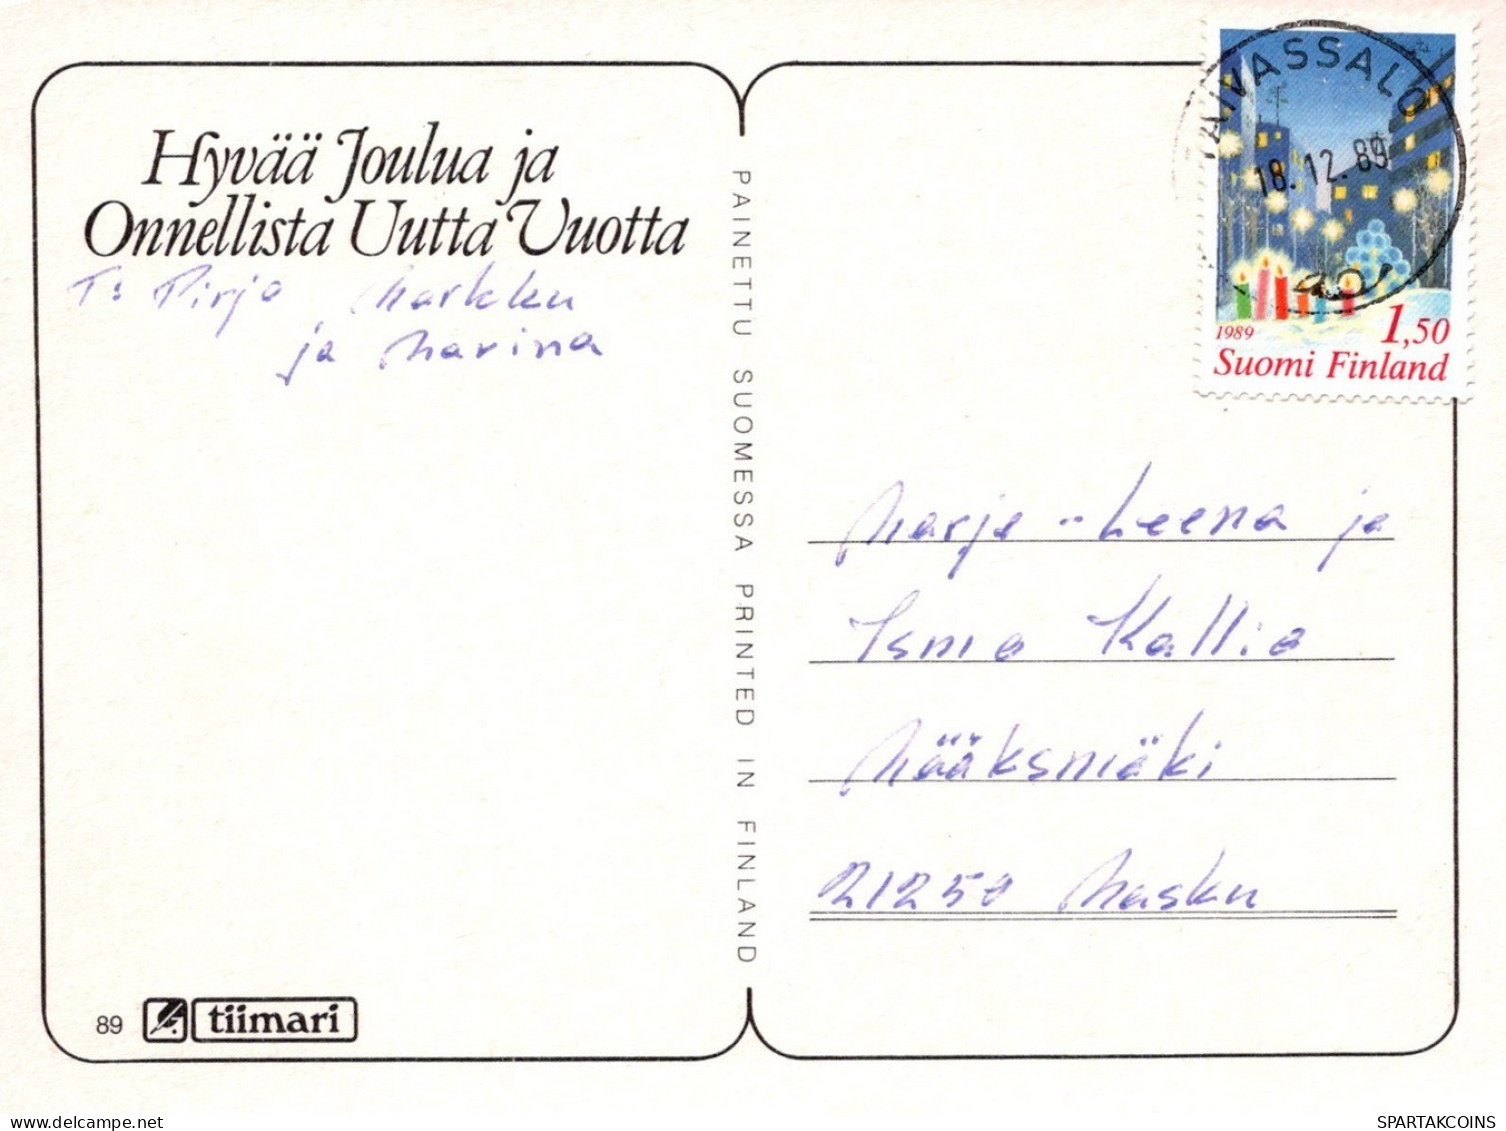 Hyvää Joulua ja
Onnellista Uutta Vuotta
T: Pirjo, Markku
ja Marina
89 tiimari
PAINETTU SUOMESSA PRINTED IN FINLAND
AIVASSALO
18.12.89
1989 1,50
Suomi Finland
Marja-Leena ja
Ismo Kallio
Määksmäki
21250 Masku
www.delcampe.net
SPARTAKCOINS